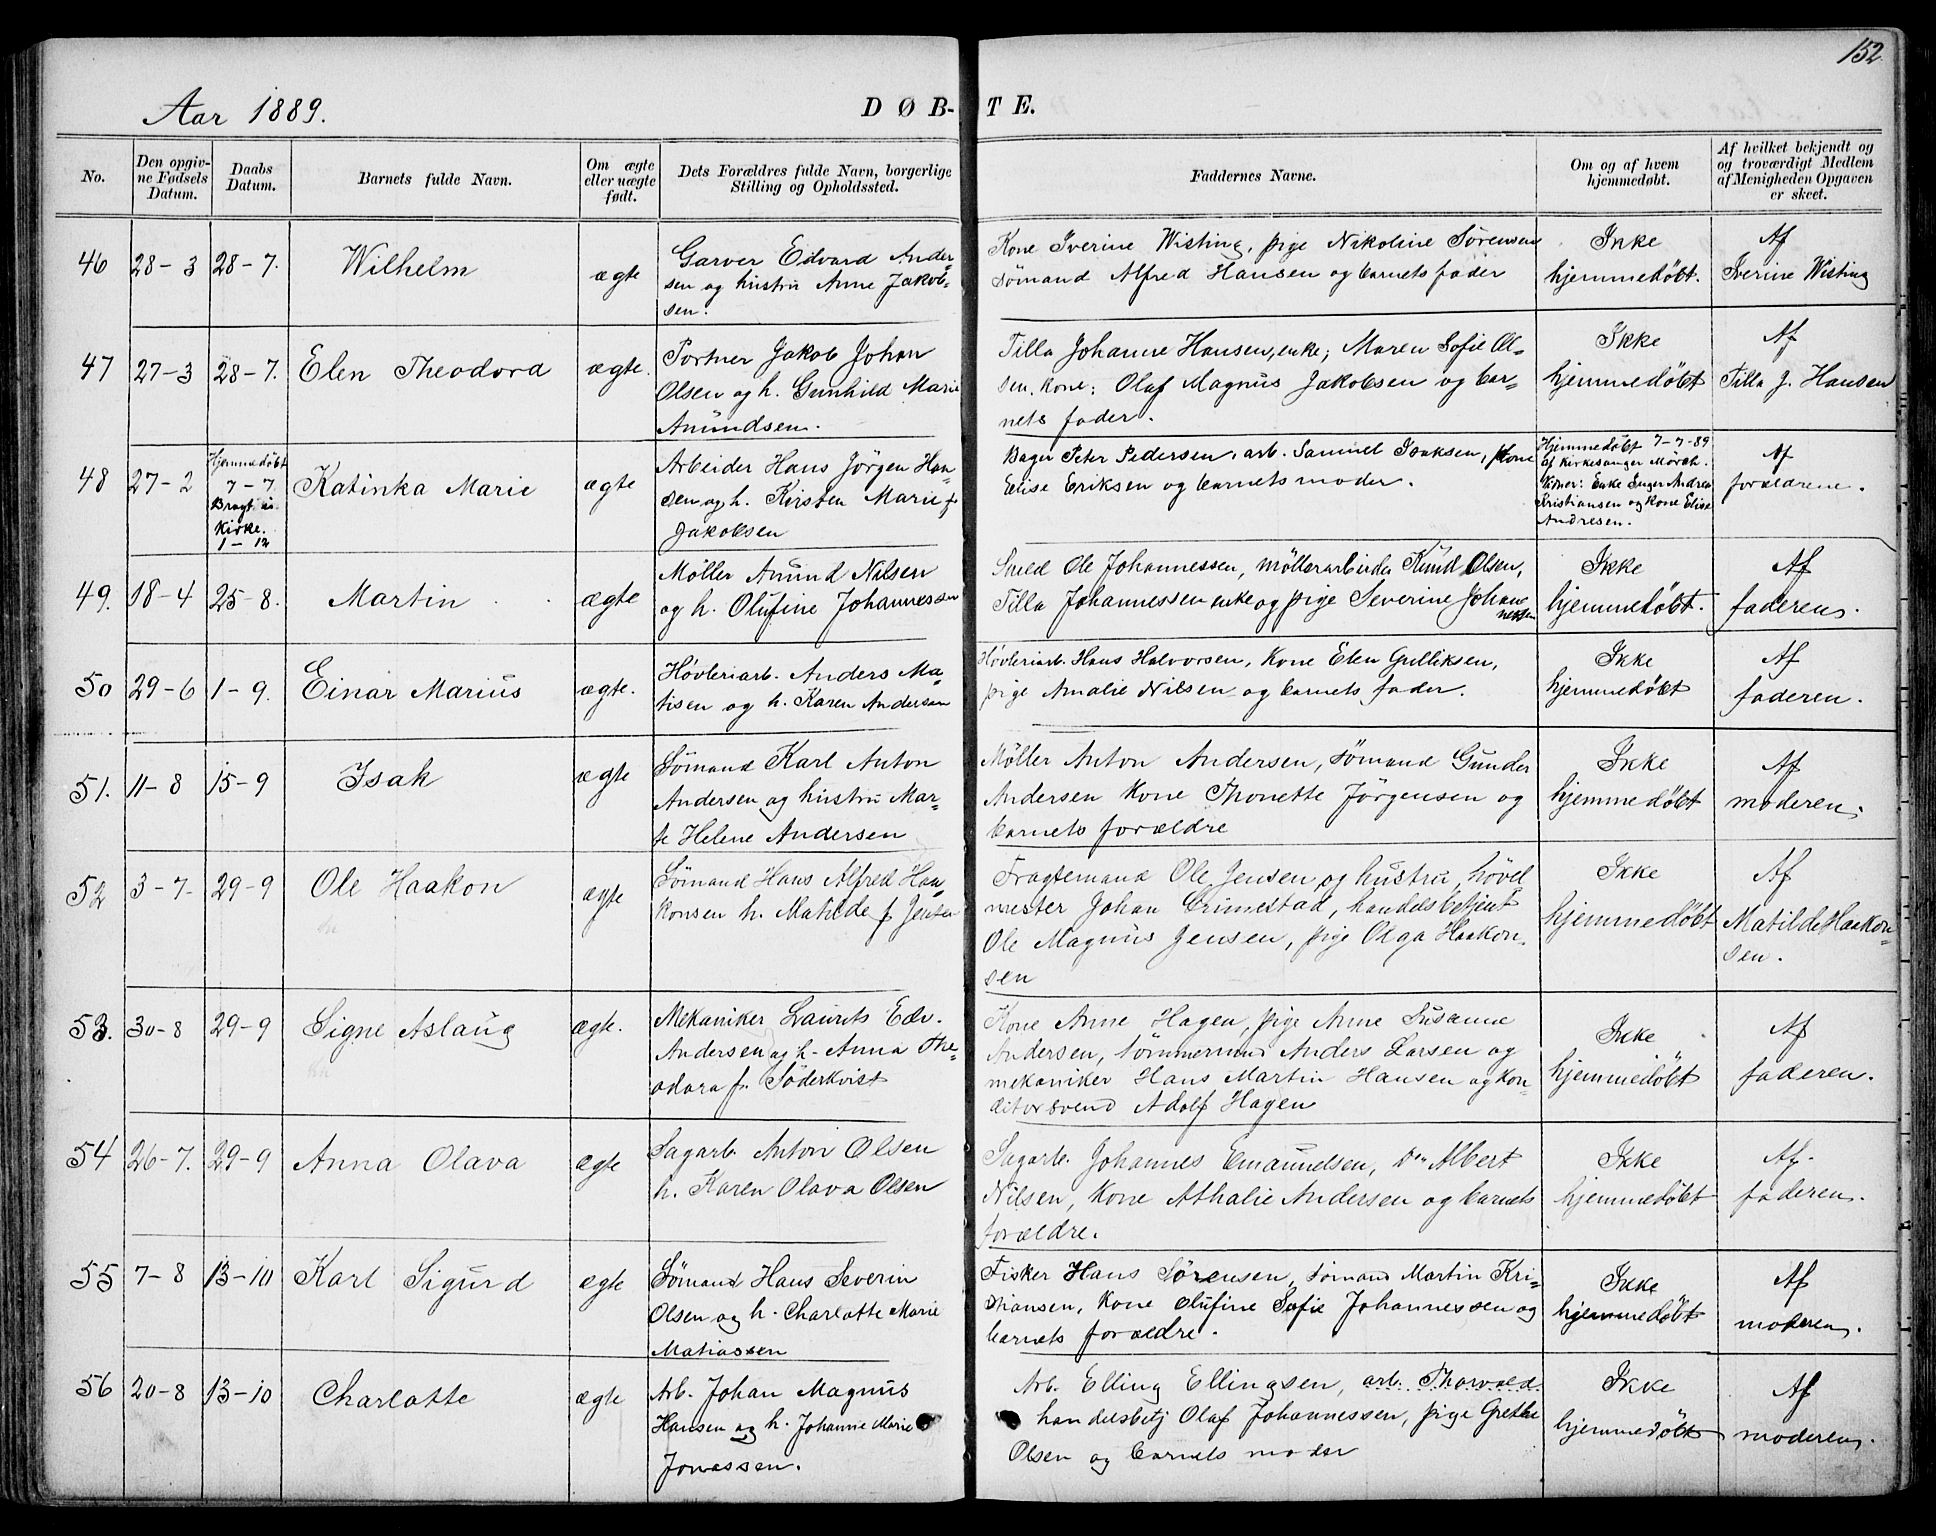 152
Aar 1889.
DØB- TE.
No.
Den opgiv-
ne Fødsels
Datum.
Daabs
Datum.
Barnets fulde Navn.
Om ægte
eller uægte
født.
Dets Forældres fulde Navn, borgerlige
Stilling og Opholdssted.
Faddernes Navne.
Om og af hvem
hjemmedøbt.
Af hvilket bekjendt og
og troværdigt Medlem
af Menigheden Opgaven
er skeet.
46 28-3 28-7. Wilhelm ægte
Garver Edvard Ander-
sen og hustru Anne Jakob-
sen.
Kone Iverine Wisting, pige Nikoline Sørensen
sømand Alfred Hansen og barnets fader
Ikke
hjemmedøbt.
Af
Iverine Wisting
47 27-3 28-7. Elen Theodora ægte.
Portner Jakob Johan
Olsen og h. Gunhild Marie
Amundsen.
Tilla Johanne Hansen, enke; Maren Sofie Ol-
sen, kone; Olaf Magnus Jakobsen og bar-
nets fader.
Ikke
hjemmedøbt
Af
Tilla J. Hansen
48 27-2
Hjemmedøbt
7-7
Bragt i
Kirke.
1-12
Katinka Marie ægte
Arbeider Hans Jørgen Han-
sen og h. Kirsten Marie f.
Jakobsen
Bager Peter Pedersen, arb. Samuel Isaksen, kone
Elise Eriksen og barnets moder.
Hjemmedøbt 7-7-89
af Kirkesanger Mörch.
Vidner: Enke Inger Andrea
Kristiansen og Kone Elise
Andresen.
Af
forældrene.
49. 18-4 25-8. Martin ægte
Møller Amund Nilsen
og h. Olufine Johannessen
Smed Ole Johannessen, møllerarbeider Knud Olsen,
Tilla Johannessen enke og pige Severine Johan-
nessen
Ikke
hjemmedøbt.
Af
faderen.
50 29-6 1-9. Einar Marius ægte.
Høvleriarb. Anders Ma-
tisen og h. Karen Andersen
Høvleriarb. Hans Halvorsen, Kone Elen Gulliksen,
pige Amalie Nilsen og barnets fader.
Ikke
hjemmedøbt
Af
faderen.
51. 11-8 15-9 Isak ægte
Sømand Karl Anton
Andersen og hustru Mar-
te Helene Andersen
Møller Anton Andersen, sømand Gunder
Andersen Kone Thonette Jørgensen og
barnets forældre
Ikke
hjemmedøbt
Af
moderen.
52 3-7. 29-9 Ole Haakon ægte
Sømand Hans Alfred Haa-
konsen h. Matilde f Jensen
Fragtemand Ole Jensen og hustru, høvel-
mester Johan Grimestad, handelsbetjent
Ole Magnus Jensen, pige Olga Haakon-
sen
Ikke
hjemmedøbt
Af
Matilde Haakon-
sen.
53. 30-8 29-9 Signe Aslaug ægte.
Mekaniker Laurits Edv.
Andersen og h. Anna The-
odora f. Söderkvist
Kone Anne Hagen, pige Anne Susanne
Andersen, tømmermand Anders Larsen og
mekaniker Hans Martin Hansen og kon-
ditorsvend Adolf Hagen
Ikke
hjemmedøbt
Af
faderen.
54 26-7. 29-9 Anna Olava ægte
Sagarb. Anton Olsen
h. Karen Olava Olsen
Sagarb. Johannes Emanuelsen, Do Albert
Nilsen, Kone Athalie Andersen og barnets
forældre.
Ikke
hjemmedøbt
Af
faderen.
55 7-8 13-10 Karl Sigurd ægte
Sømand Hans Severin
Olsen og h. Charlotte Marie
Matiassen
Fisker Hans Sørensen, sømand Martin Kri-
stiansen, Kone Olufine Sofie Johannessen og
barnets forældre.
Ikke
hjemmedøbt
Af
moderen.
56 20-8 13-10 Charlotte ægte
Arb. Johan Magnus
Hansen og h. Johanne Marie
Jonassen.
Arb. Elling Ellingsen, arb. Thorvald
handelsbetj Olaf Johannessen, pige Grethe
Olsen og barnets moder
Ikke
hjemmedøbt
Af
moderen.